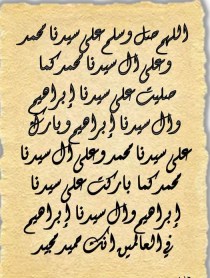 اللهم صل وسلم على سيدنا محمد
وعلى ال سيدنا محمد كما
صليت على سيدنا إبراهيم
وال سيدنا إبراهيم وبارك
على سيدنا محمد وعلى ال سيدنا
محمد كما باركت على سيدنا
إبراهيم وال سيدنا إبراهيم
في العالمين انك حميد مجيد